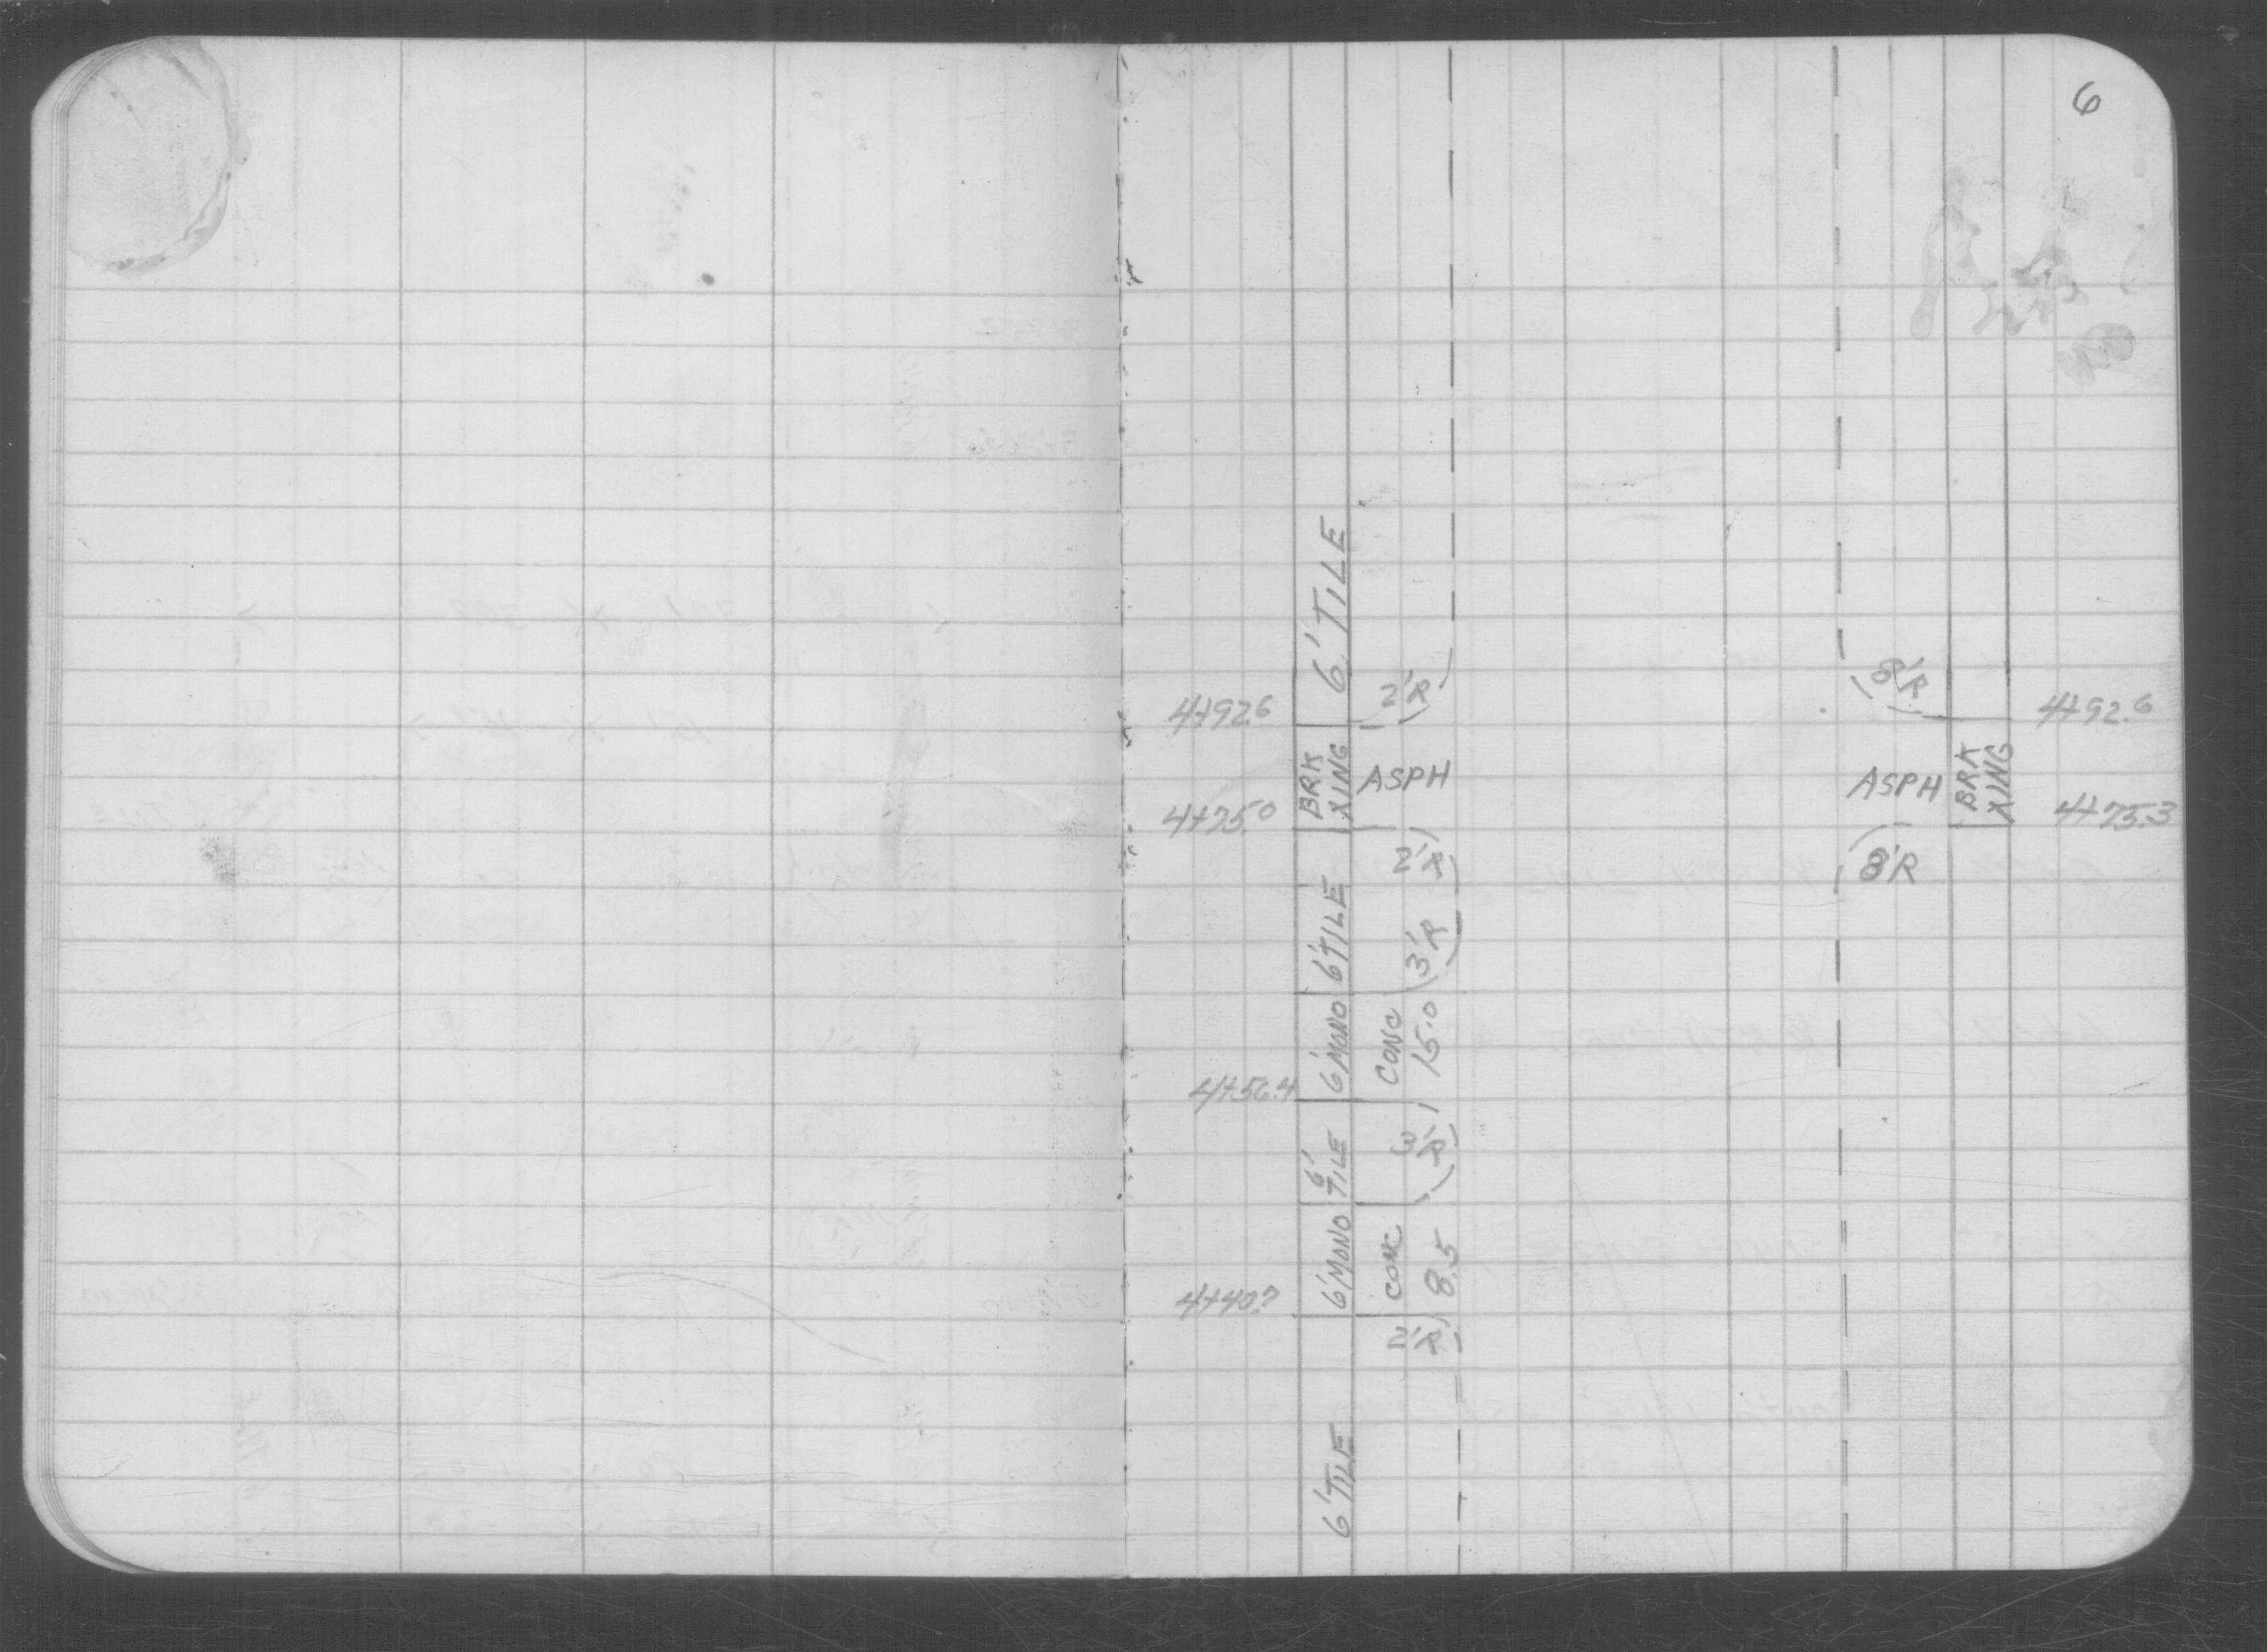 6
6' TILE
2'R
8'R
4+92.6
4+92.6
BRK
XING
ASPH
ASPH
BRK
XING
4+75.0
4+75.3
2'R
8'R
6' TILE
3'R
6' MONO
CONC
15.0
4+56.4
6'
TILE
3'R
6' MONO
CONC
8.5
2'R
6' TILE